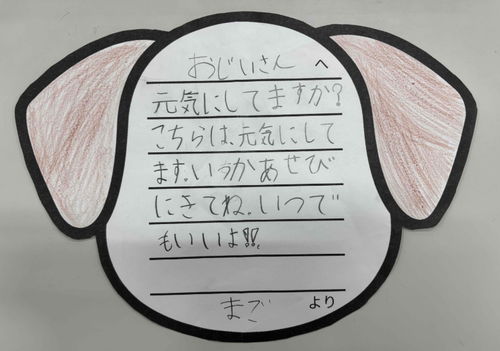 おじいさん へ
元気にしてますか?
こちらは、元気にして
ます。いつかあせび
にきてね。いつで
もいいよ!!
まご より